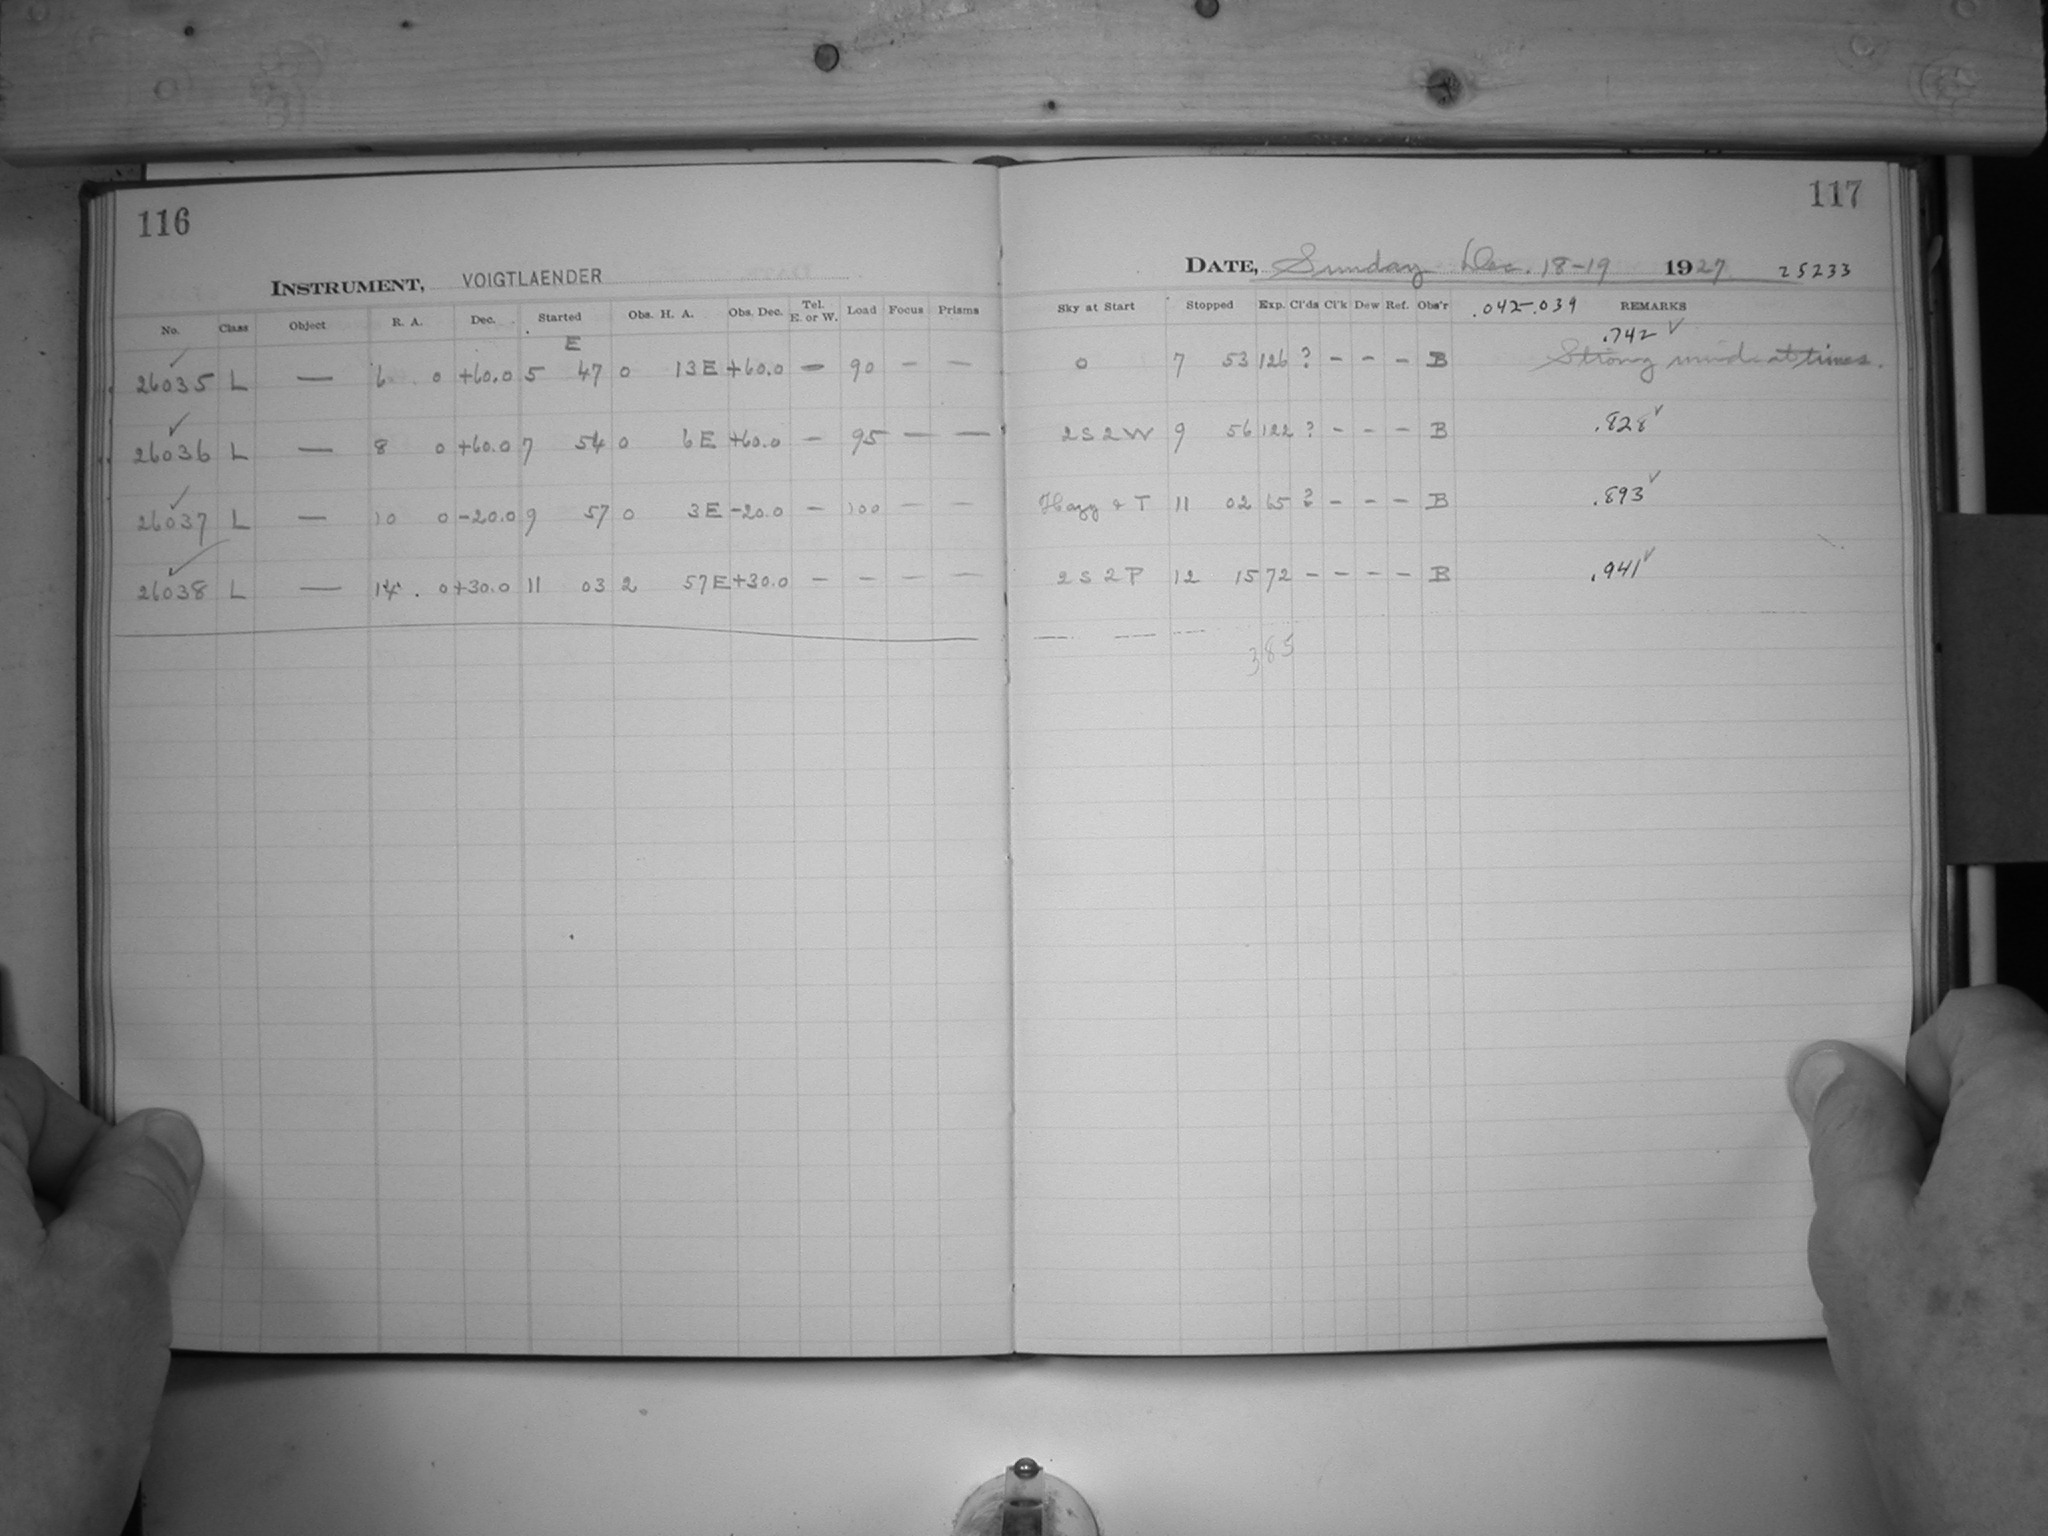 116
INSTRUMENT, VOIGTLAENDER
No. Class Object R. A. Dec. Started Obs. H. A. Obs. Dec. Tel. E. or W. Load Focus Prisms
E
26035 L — 6 0 +60.0 5 47 0 13 E +60.0 — 90 — —
26036 L — 8 0 +60.0 7 54 0 6 E +60.0 — 95 — —
26037 L — 10 0 -20.0 9 57 0 3 E -20.0 — 100 — —
26038 L — 14 0 +30.0 11 03 2 57 E +30.0 — — — —
117
DATE, Sunday Dec. 18-19 1927 25233
Sky at Start Stopped Exp. Cl'ds Cl'k Dew Ref. Obs'r .042-.039 REMARKS
.742 ✓
0 7 53 126 ? — — — B Strong winds at times.
2 S 2 W 9 56 122 ? — — — B .828 ✓
Hazy & T 11 02 65 ? — — — B .893 ✓
2 S 2 P 12 15 72 — — — — B .941 ✓
385